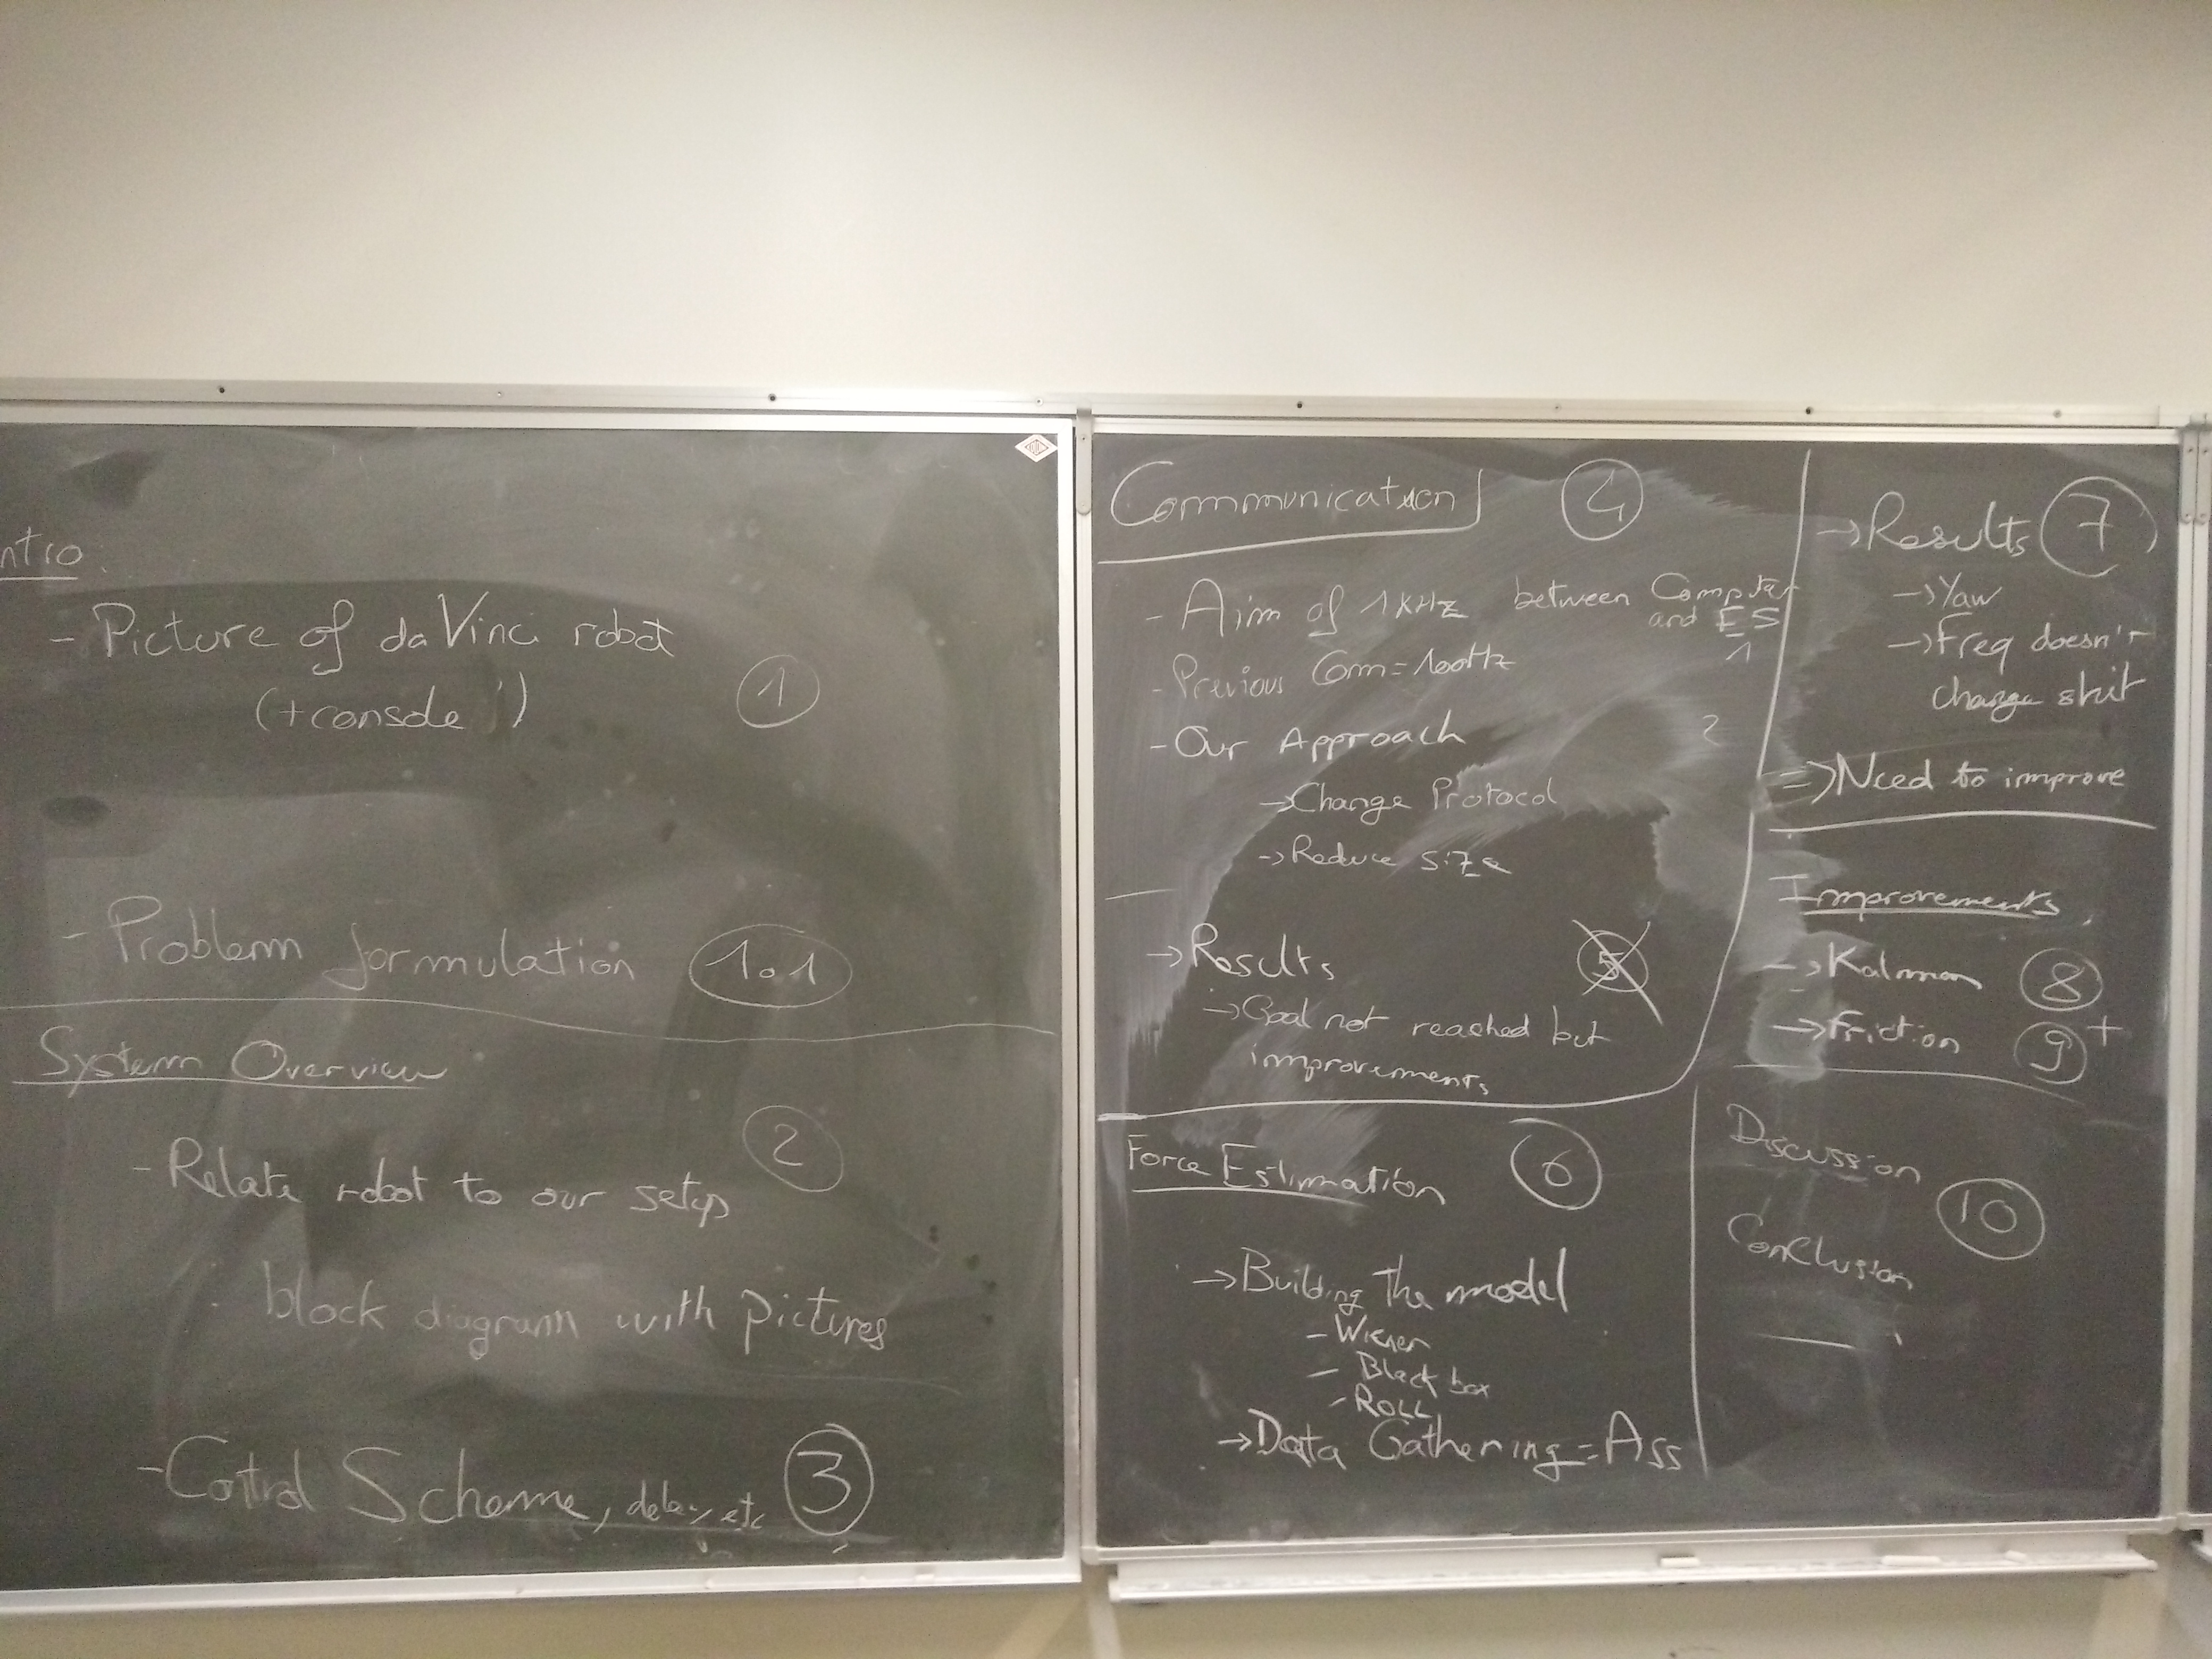 ntro
- Picture of da Vinci robot
(+console)
1
- Problem formulation 1.1
System Overview
2
- Relate robot to our setup
block diagram with pictures
- Control Scheme, delay, etc 3
Communication 4
- Aim of 1KHz between Computer
and ES
- Previous Com=100Hz 1
- Our Approach 2
→ Change Protocol
→ Reduce size
→ Results 5
→ Goal not reached but
improvements
Force Estimation 6
→ Building the model
- Wiener
- Black box
- ROLL
→ Data Gathering = Ass
→ Results 7
→ Yaw
→ Freq doesn't
change shit
=> Need to improve
Improvements
→ Kalman 8
→ Friction 9 +
Discussion
10
Conclusion